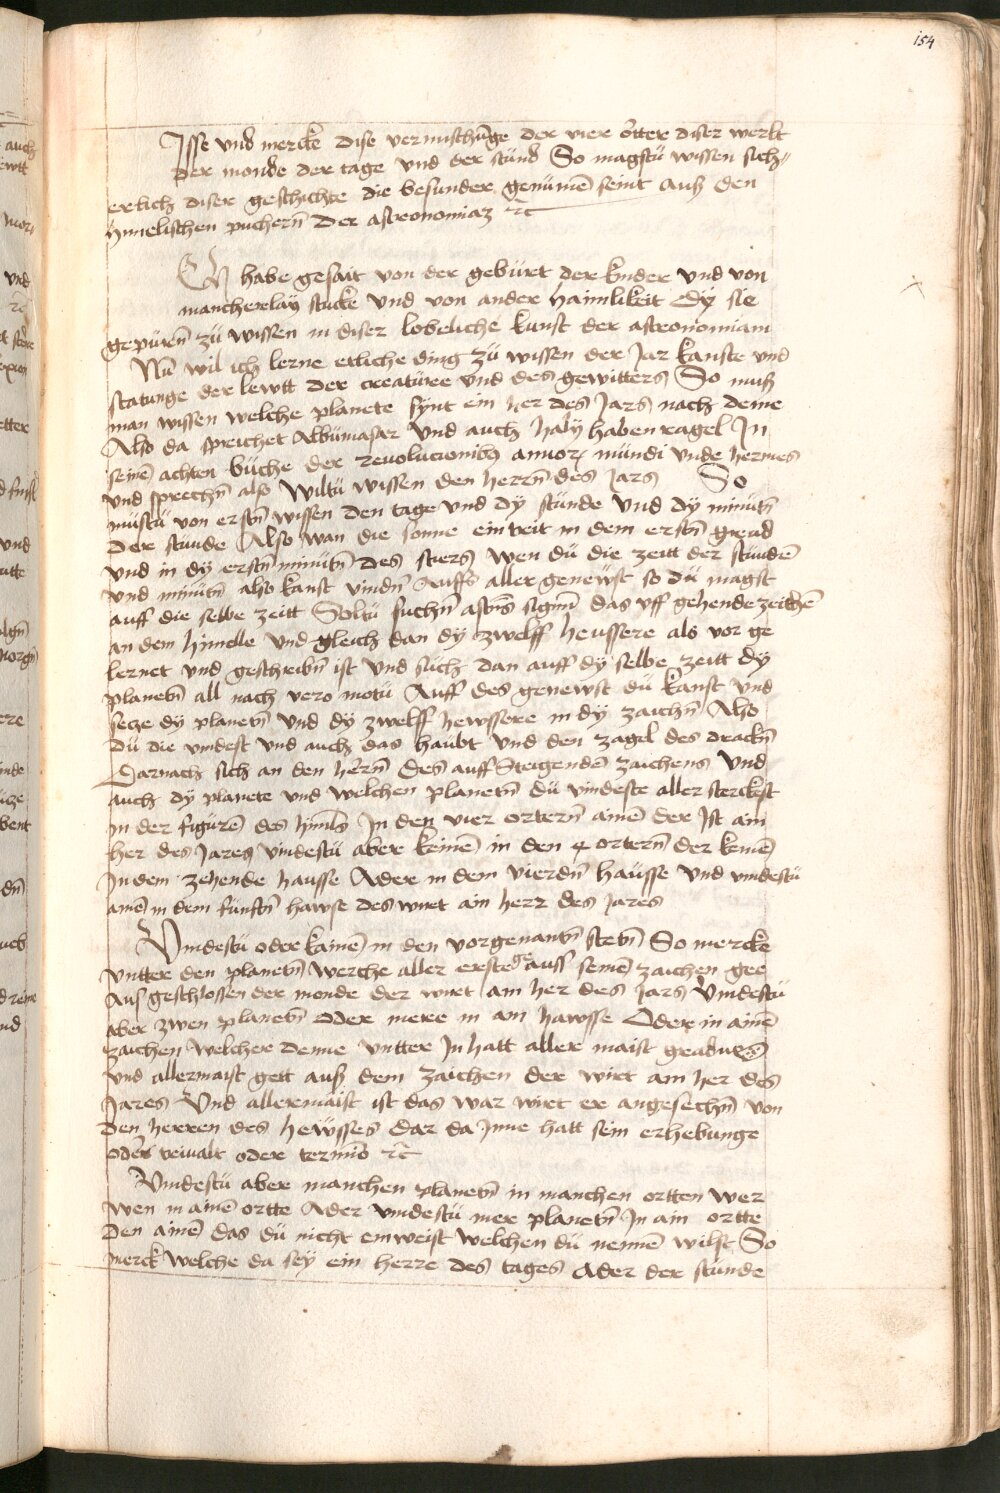 154
Isse vnd mercke dise vermischūge der vier ötter diser werlt
Der monde der tage vnd der stūnd So magstu wissen sich=
erlich diser geschichte die besunder genūmē seint auß den
hymelischen puchern̄ der astronomiaz ꝛc̄
habe gesait von der gebürt der kinder vnd von
mancherlaÿ stucke vnd von ander haimlikeit Dÿ sie
gepürn̄ zü wissen in diser lobeliche kunst der astronomiam
Nū wil ich lerne etliche ding zü wissen der Jar kanste vnd
statunge der lewtt der creatüree vnd des gewitters So muß
man wissen welche planete sÿnt ein her des Jars nach deme
Also da sprichet Albümasar vnd auch halÿ haben ragel In
seinē achten büche der reuolucionibꝫ annorꝝ mündi vnde hermes
vnd sprechn̄ also Wiltü wissen den herrn̄ des Jars So
müstü von erstn̄ wissen den tage vnd dÿ stünde vnd dÿ minütn̄
Der stünde Also wan die sonne eintreit in dem erstn̄ grad
vnd in dÿ erstn̄ minütn̄ des stiers wen dü die zeitt der stündē
vnd minütn̄ also kanst vindn̄ Auffs aller genewst so dü magst
auff die selbe zeitt Soltü suchn̄ astn̄s signū das vff gehende zeichē
an dem himelle vnd gleich dan dÿ zwelff heussere als vor ge
lernet vnd geschribn̄ ist vnd süch dan auff dÿ selbe zeitt dÿ
planetn̄ all nach vero motü Auff des genewst dü kanst vnd
setze dÿ planetn̄ vnd dÿ zwelff hewssere in dÿ zaichn̄ Also
Dü die vindest vnd auch das haübt vnd den zagel des drackn̄
Darnach sich an den hern̄ des auff Steigendē zaichens vnd
auch dÿ planete vnd welchen planetn̄ dü vindeste aller sterckest
in der figürē des himls In den vier ortern̄ ainē der Ist ain
her des Jares vindestü aber keinē in den 4 ortern̄ der keinē
In dem zehende hausse Ader in dem vierdn̄ haüsse vnd vindestü
ainē in dem fünftn̄ hawse des wirt ain herr des Jares
Vindestü oder kainē in den vorgenantn̄ stetn̄ So mercke
vntter den planetn̄ welche aller erste ge auss seinē zaichen gee
Aus geschlossen der monde der wirt ain her des Jars Vindestü
aber zwen planetn̄ oder mere in ain hawsse Oder in ainē
zaichen welcher denne vntter In hatt aller maist gradus
vnd allermaist gett auß dem zaichen der wirt ain her des
Jares Vnd allermaist ist das war wirt er angesechn̄ von
den herren des hewsses Dar da Inne hatt sein erhebunge
oder triualt oder terminō ꝛc̄
Vindestü aber manchen planetn̄ in manchen ortten wer
wen in ainē ortte Ader vindestü mer planetn̄ In ain ortte
Den ainē das dü nicht enweist welchen dü nemē wilst So
merck welche da seÿ ein herre des tages Ader der stünde